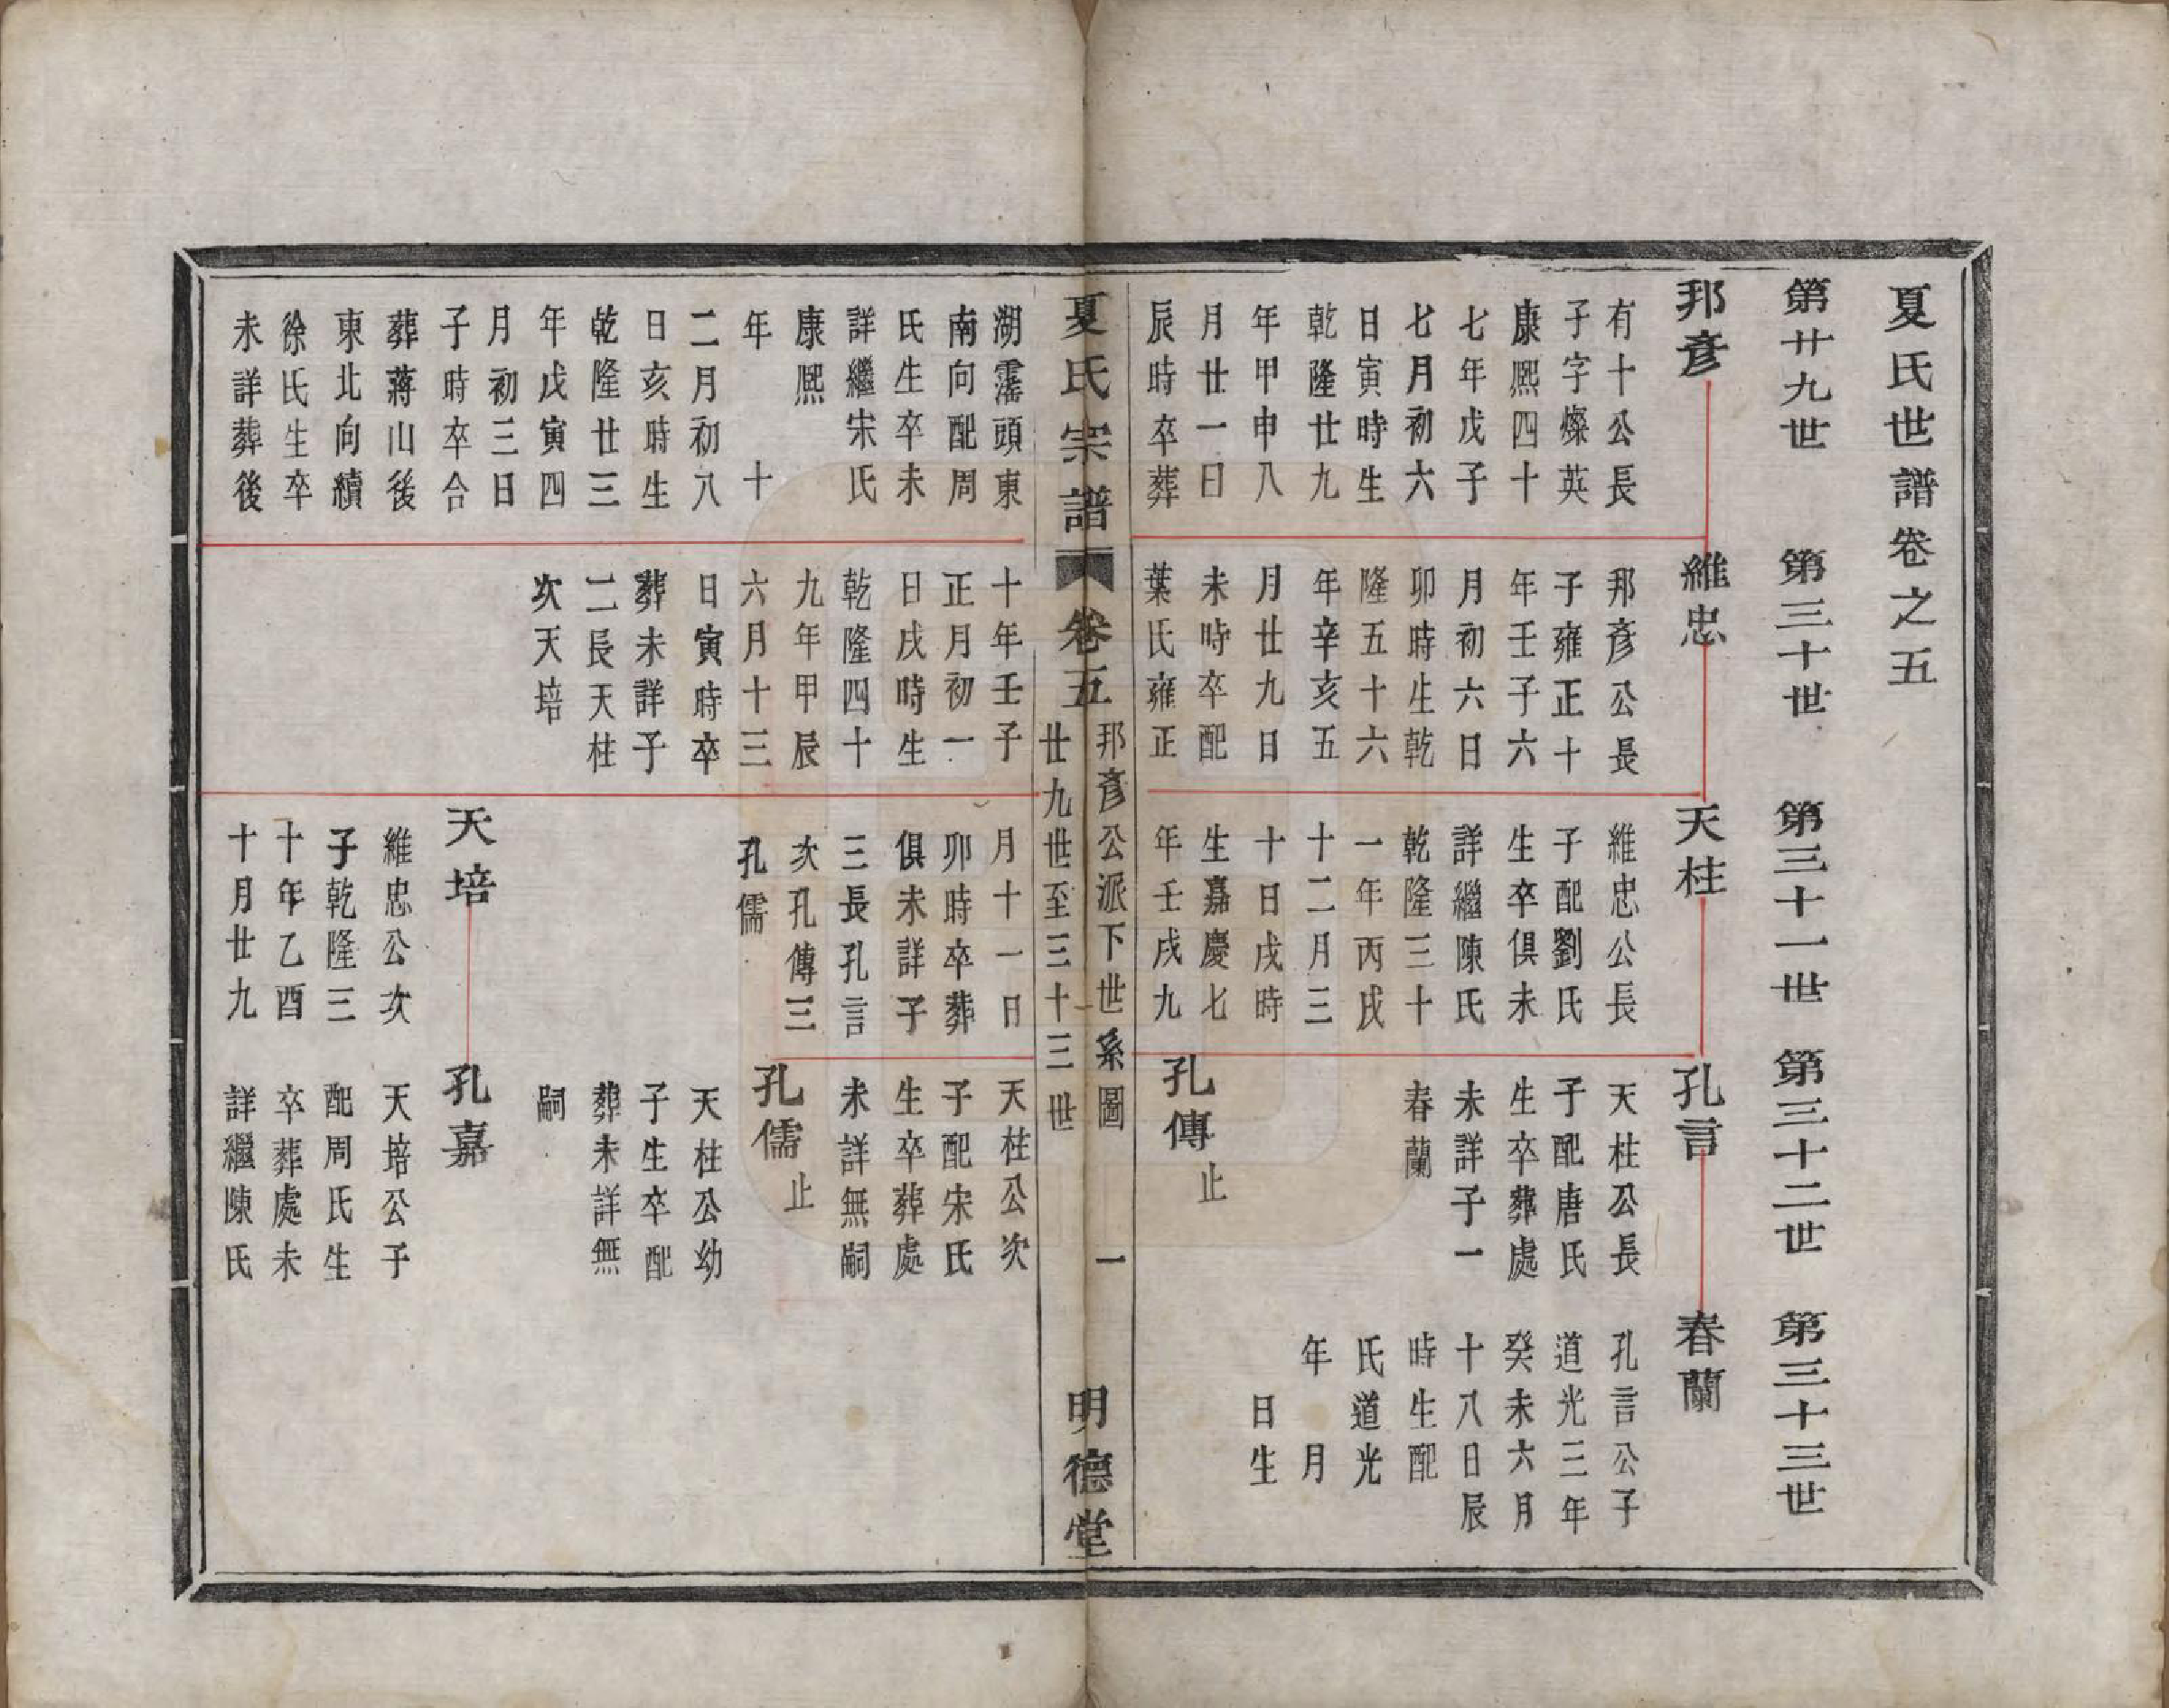 夏氏世譜卷之五
第廿九世
第三十世
第三十一世
第三十二世
第三十三世
邦彥
有十公長
子字燦英
康熙四十
七年戊子
七月初六
日寅時生
乾隆廿九
年甲申八
月廿一日
辰時卒葬
維忠
邦彥公長
子雍正十
年壬子六
月初六日
卯時生乾
隆五十六
年辛亥五
月廿九日
未時卒配
葉氏雍正
天柱
維忠公長
子配劉氏
生卒俱未
詳繼陳氏
乾隆三十
一年丙戌
十二月三
十日戌時
生嘉慶七
年壬戌九
孔言
天柱公長
子配唐氏
生卒葬處
未詳子一
春蘭
孔傳 止
春蘭
孔言公子
道光三年
癸未六月
十八日辰
時生配
氏道光
年 月
日生
夏氏宗譜
卷五
邦彥公派下世系圖
廿九世至三十三世
一
明德堂
湖𩆍頭東
南向配周
氏生卒未
詳繼宋氏
康熙
年 十
二月初八
日亥時生
乾隆廿三
年戊寅四
月初三日
子時卒合
葬蔣山後
東北向續
徐氏生卒
未詳葬後
十年壬子
正月初一
日戌時生
乾隆四十
九年甲辰
六月十三
日寅時卒
葬未詳子
二長天柱
次天培
月十一日
卯時卒葬
俱未詳子
三長孔言
次孔傳三
孔儒
天培
維忠公次
子乾隆三
十年乙酉
十月廿九
天柱公次
子配宋氏
生卒葬處
未詳無嗣
孔儒 止
天柱公幼
子生卒配
葬未詳無
嗣
孔嘉
天培公子
配周氏生
卒葬處未
詳繼陳氏